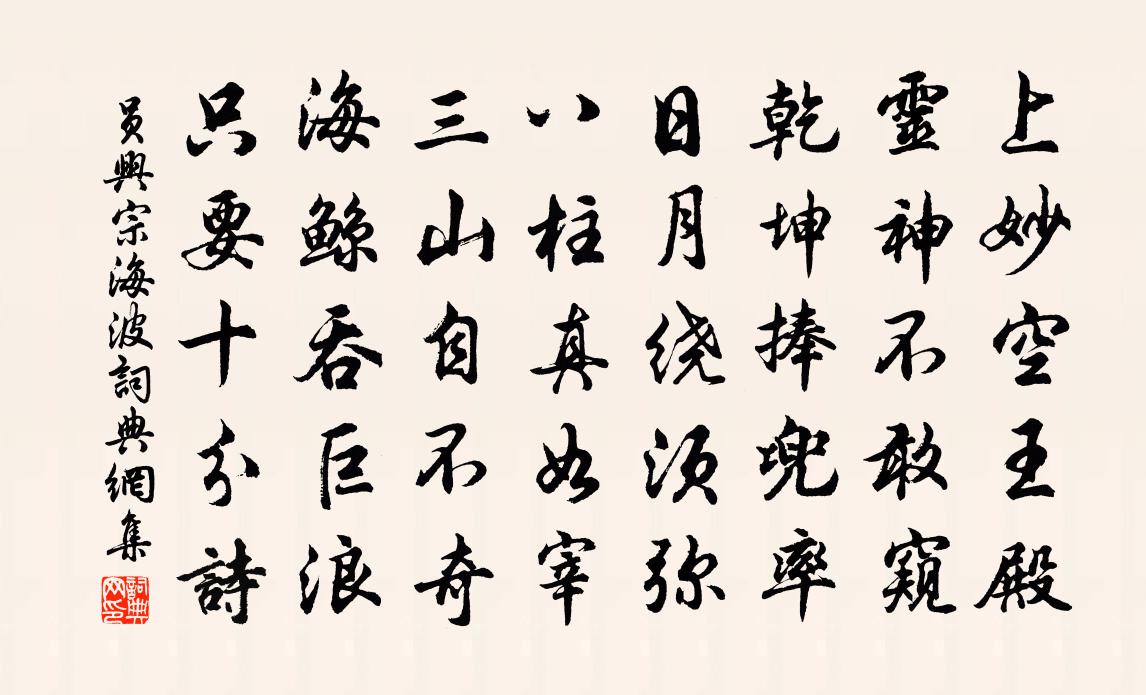 上妙空王殿
靈神不敢窺
乾坤捧兜率
日月绕须弥
八柱真如宰
三山自不奇
海鯨吞巨浪
只要十分詩
員興宗海波詞典網集
詞典网印